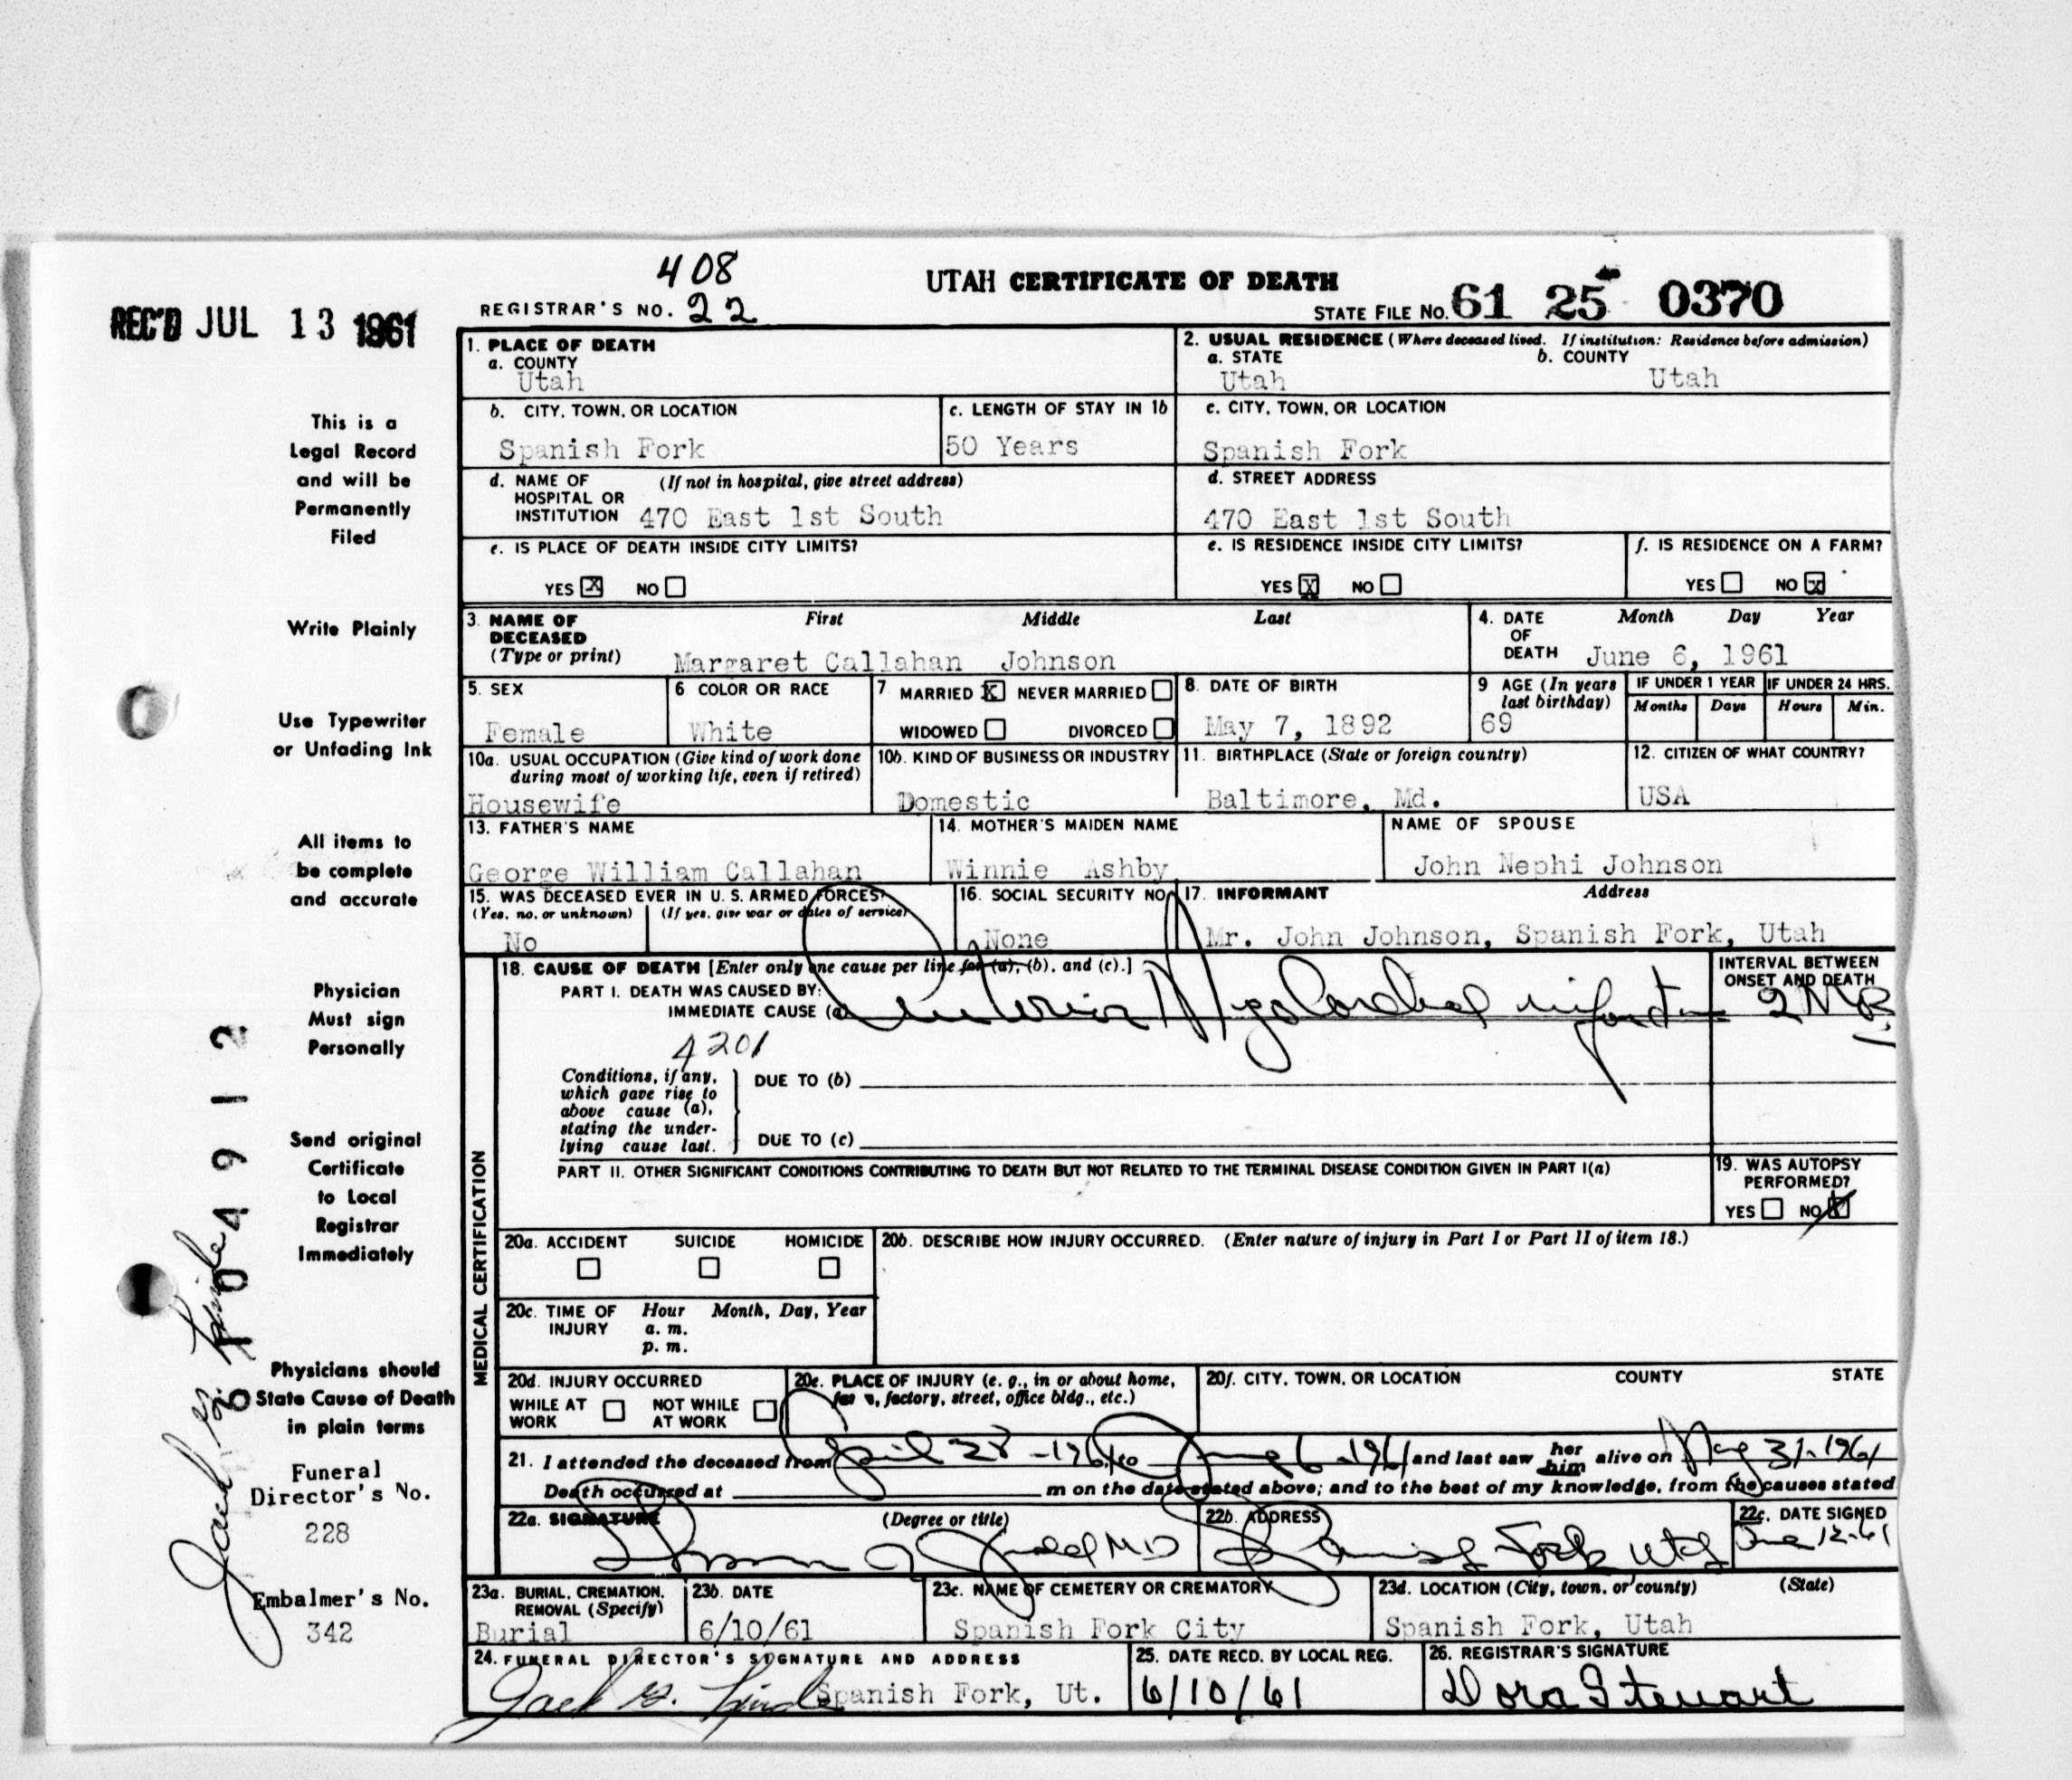 408
UTAH CERTIFICATE OF DEATH
REC'D JUL 13 1961
REGISTRAR'S NO. 22
STATE FILE NO. 61 25 0370
This is a
Legal Record
and will be
Permanently
Filed
Write Plainly
Use Typewriter
or Unfading Ink
All items to
be complete
and accurate
Physician
Must sign
Personally
Send original
Certificate
to Local
Registrar
Immediately
Physicians should
State Cause of Death
in plain terms
Funeral
Director's No.
228
Embalmer's No.
342
1. PLACE OF DEATH
a. COUNTY
Utah
2. USUAL RESIDENCE (Where deceased lived. If institution: Residence before admission)
a. STATE b. COUNTY
Utah Utah
b. CITY, TOWN, OR LOCATION
Spanish Fork
c. LENGTH OF STAY IN 1b
50 Years
c. CITY, TOWN, OR LOCATION
Spanish Fork
d. NAME OF (If not in hospital, give street address)
HOSPITAL OR
INSTITUTION 470 East 1st South
d. STREET ADDRESS
470 East 1st South
e. IS PLACE OF DEATH INSIDE CITY LIMITS?
YES X NO
e. IS RESIDENCE INSIDE CITY LIMITS?
YES X NO
f. IS RESIDENCE ON A FARM?
YES NO X
3. NAME OF First Middle Last
DECEASED
(Type or print) Margaret Callahan Johnson
4. DATE Month Day Year
OF
DEATH June 6, 1961
5. SEX
Female
6 COLOR OR RACE
White
7 MARRIED X NEVER MARRIED
WIDOWED DIVORCED
8. DATE OF BIRTH
May 7, 1892
9 AGE (In years
last birthday)
69
IF UNDER 1 YEAR IF UNDER 24 HRS.
Months Days Hours Min.
10a. USUAL OCCUPATION (Give kind of work done
during most of working life, even if retired)
Housewife
10b. KIND OF BUSINESS OR INDUSTRY
Domestic
11. BIRTHPLACE (State or foreign country)
Baltimore, Md.
12. CITIZEN OF WHAT COUNTRY?
USA
13. FATHER'S NAME
George William Callahan
14. MOTHER'S MAIDEN NAME
Winnie Ashby
NAME OF SPOUSE
John Nephi Johnson
15. WAS DECEASED EVER IN U. S. ARMED FORCES?
(Yes, no, or unknown) (If yes, give war or dates of service)
No
16. SOCIAL SECURITY NO.
None
17. INFORMANT Address
Mr. John Johnson, Spanish Fork, Utah
MEDICAL CERTIFICATION
18. CAUSE OF DEATH [Enter only one cause per line for (a), (b), and (c).]
PART I. DEATH WAS CAUSED BY:
IMMEDIATE CAUSE (a) Anterior Myocardial infarction
INTERVAL BETWEEN
ONSET AND DEATH
4201
Conditions, if any,
which gave rise to
above cause (a),
stating the under-
lying cause last.
DUE TO (b)
DUE TO (c)
PART II. OTHER SIGNIFICANT CONDITIONS CONTRIBUTING TO DEATH BUT NOT RELATED TO THE TERMINAL DISEASE CONDITION GIVEN IN PART I(a)
19. WAS AUTOPSY
PERFORMED?
YES NO X
20a. ACCIDENT SUICIDE HOMICIDE
20b. DESCRIBE HOW INJURY OCCURRED. (Enter nature of injury in Part I or Part II of item 18.)
20c. TIME OF Hour Month, Day, Year
INJURY a. m.
p. m.
20d. INJURY OCCURRED
WHILE AT NOT WHILE
WORK AT WORK
20e. PLACE OF INJURY (e. g., in or about home,
farm, factory, street, office bldg., etc.)
20f. CITY, TOWN, OR LOCATION COUNTY STATE
21. I attended the deceased from April 28-1961 to June 6-1961 and last saw her him alive on May 31-1961
Death occurred at m on the date stated above; and to the best of my knowledge, from the causes stated
22a. SIGNATURE (Degree or title)
MD
22b. ADDRESS
Spanish Fork Utah
22c. DATE SIGNED
June 12-61
23a. BURIAL, CREMATION,
REMOVAL (Specify)
Burial
23b. DATE
6/10/61
23c. NAME OF CEMETERY OR CREMATORY
Spanish Fork City
23d. LOCATION (City, town, or county) (State)
Spanish Fork, Utah
24. FUNERAL DIRECTOR'S SIGNATURE AND ADDRESS
Spanish Fork, Ut.
25. DATE RECD. BY LOCAL REG.
6/10/61
26. REGISTRAR'S SIGNATURE
Dora Stewart